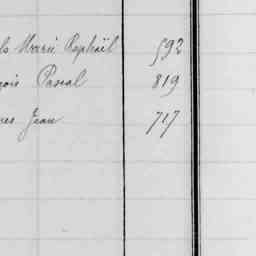 Marie Raphaël 592
Pascal 819
Jean 717